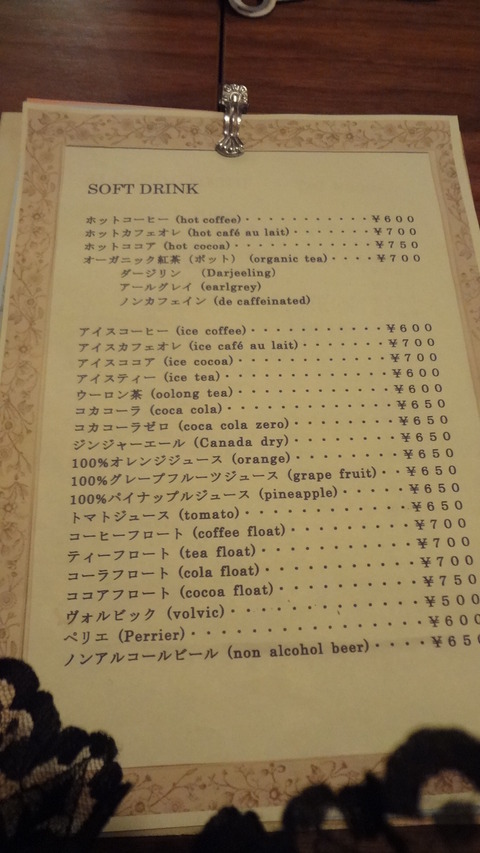 SOFT DRINK
ホットコーヒー (hot coffee)・・・・・・・・・・・・¥600
ホットカフェオレ (hot café au lait)・・・・・・・・¥700
ホットココア (hot cocoa)・・・・・・・・・・・・・¥750
オーガニック紅茶（ポット） (organic tea)・・・・¥700
ダージリン (Darjeeling)
アールグレイ (earlgrey)
ノンカフェイン (de caffeinated)
アイスコーヒー (ice coffee)・・・・・・・・・・・・¥600
アイスカフェオレ (ice café au lait)・・・・・・・・¥700
アイスココア (ice cocoa)・・・・・・・・・・・・・¥700
アイスティー (ice tea)・・・・・・・・・・・・・・¥600
ウーロン茶 (oolong tea)・・・・・・・・・・・・・¥600
コカコーラ (coca cola)・・・・・・・・・・・・・・¥650
コカコーラゼロ (coca cola zero)・・・・・・・・・¥650
ジンジャーエール (Canada dry)・・・・・・・・・¥650
100%オレンジジュース (orange)・・・・・・・・・¥650
100%グレープフルーツジュース (grape fruit)・・¥650
100%パイナップルジュース (pineapple)・・・・・¥650
トマトジュース (tomato)・・・・・・・・・・・・・¥650
コーヒーフロート (coffee float)・・・・・・・・・・¥700
ティーフロート (tea float)・・・・・・・・・・・・¥700
コーラフロート (cola float)・・・・・・・・・・・・¥700
ココアフロート (cocoa float)・・・・・・・・・・・¥750
ヴォルビック (volvic)・・・・・・・・・・・・・・¥500
ペリエ (Perrier)・・・・・・・・・・・・・・・・・¥600
ノンアルコールビール (non alcohol beer)・・・・¥650